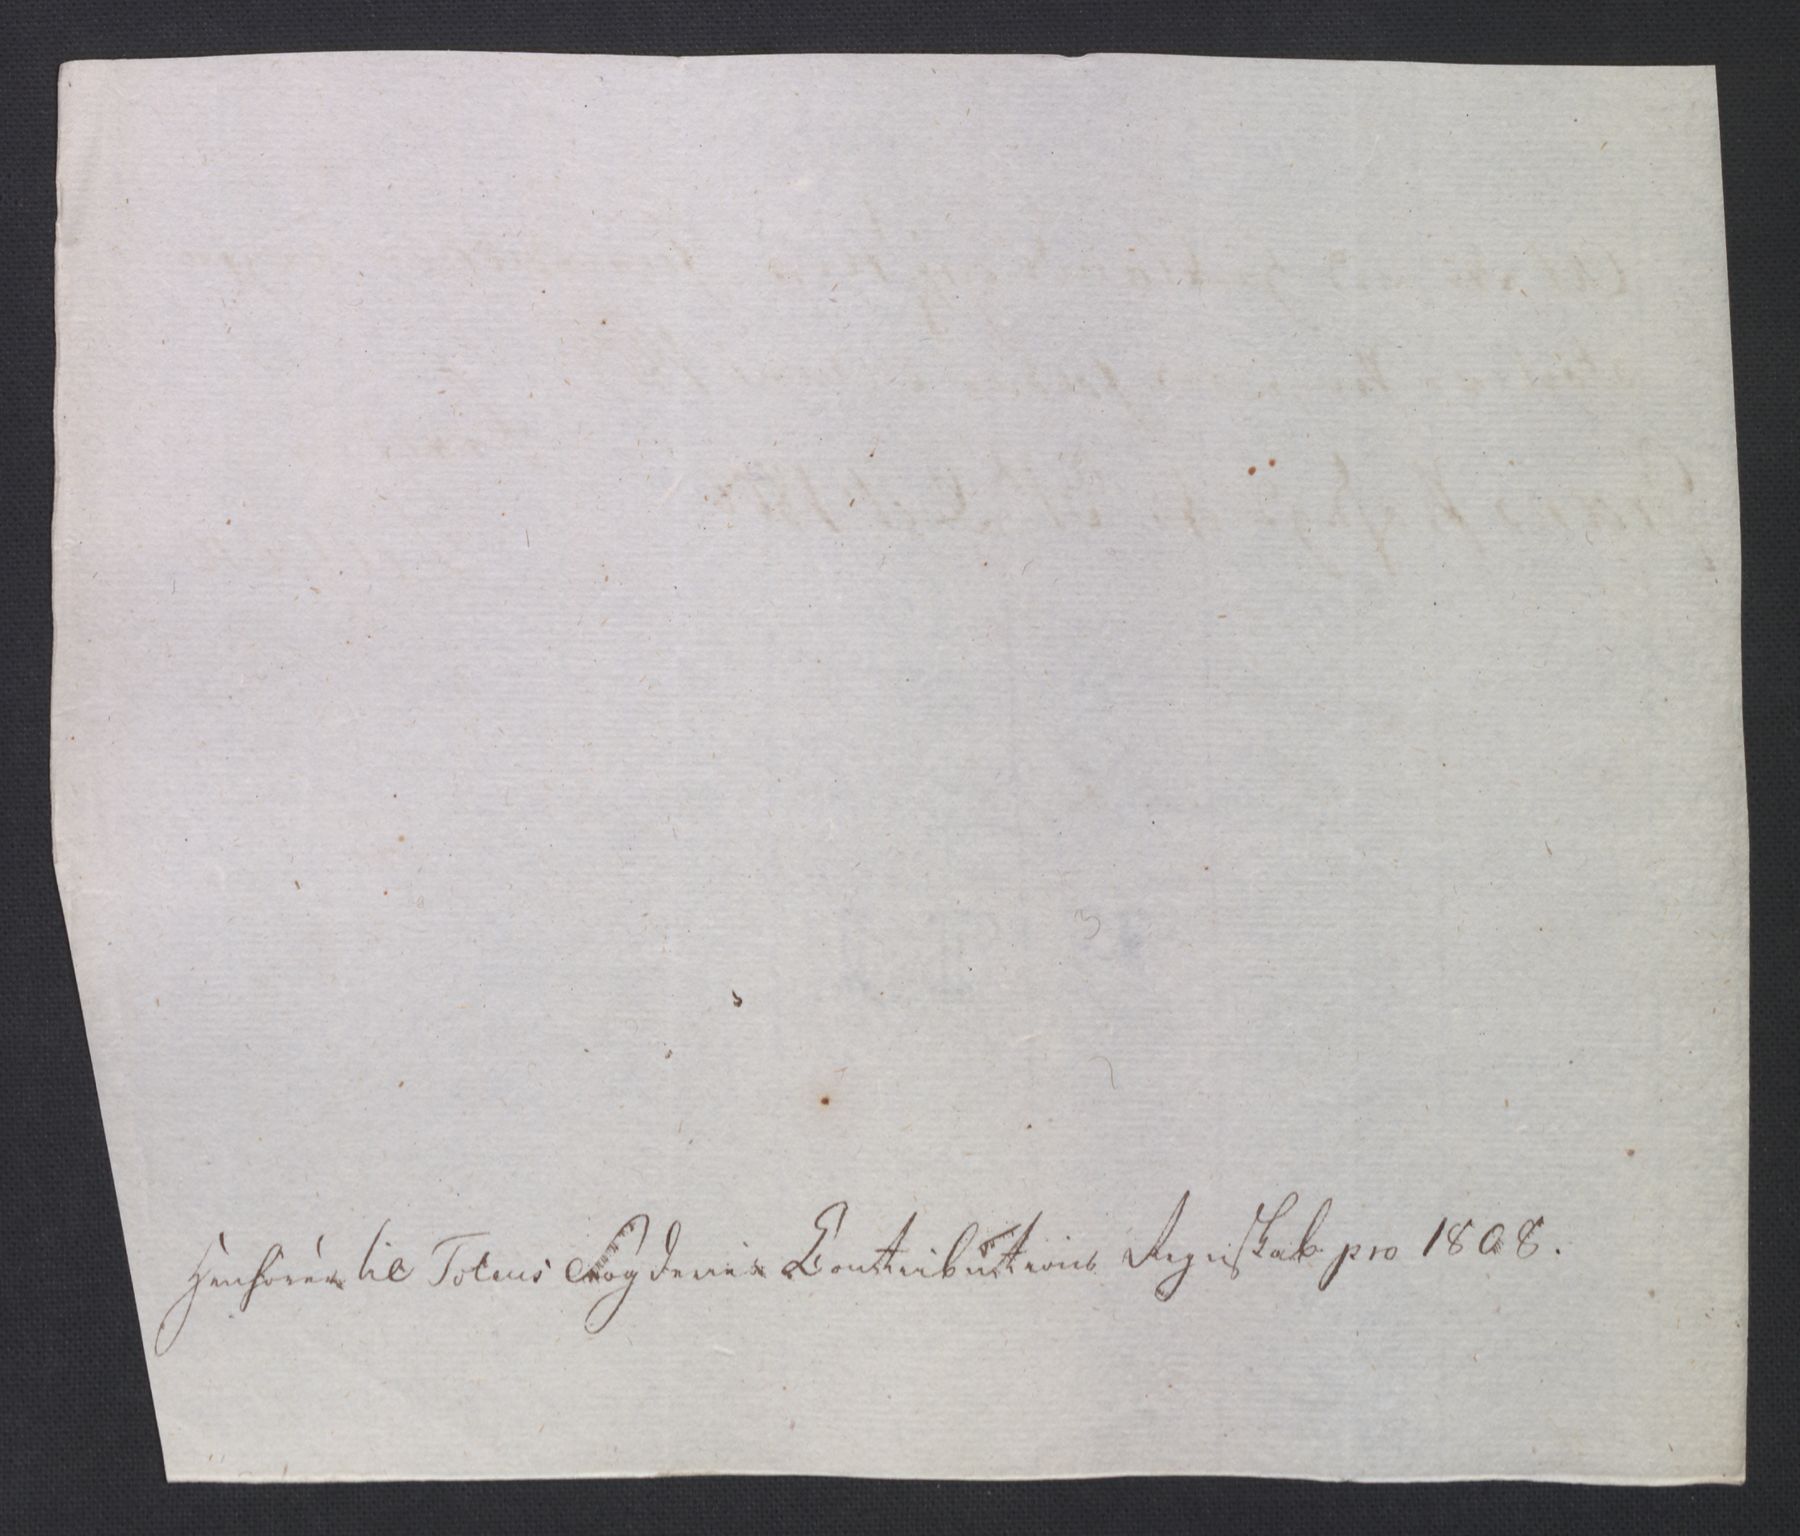 Henhörer til Totens Fogderies Contributions Regnskab pro 1808.